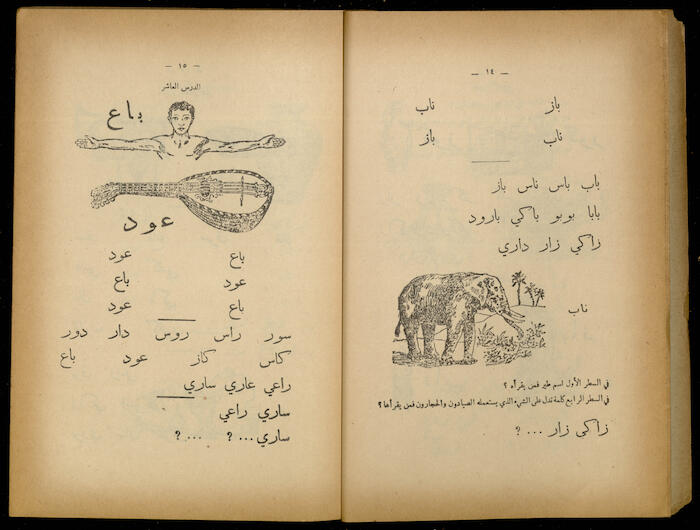 — ١٤ —
باز ناب
ناب باز
باب باس ناس باز
بابا بوبو باكي بارود
زاكي زار داري
ناب
في السطر الأول اسم طير فمن يقرأه ؟
في السطر الرابع كلمة تدل على الشيء الذي يستعمله الصيادون والحجارون فمن يقرأها ؟
زاكي زار ... ؟
— ١٥ —
الدرس العاشر
باع
عود
باع عود
عود باع
باع عود
سور راس روس دار دور
كاس كاز عود باع
راعي عاري ساري
ساري راعي
ساري ... ؟ ... ؟